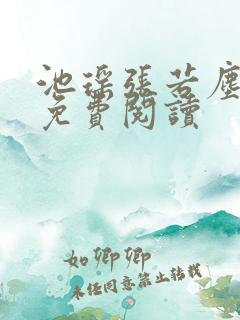 池瑤張若塵
免費閱讀
如卿卿
未經同意禁止轉載